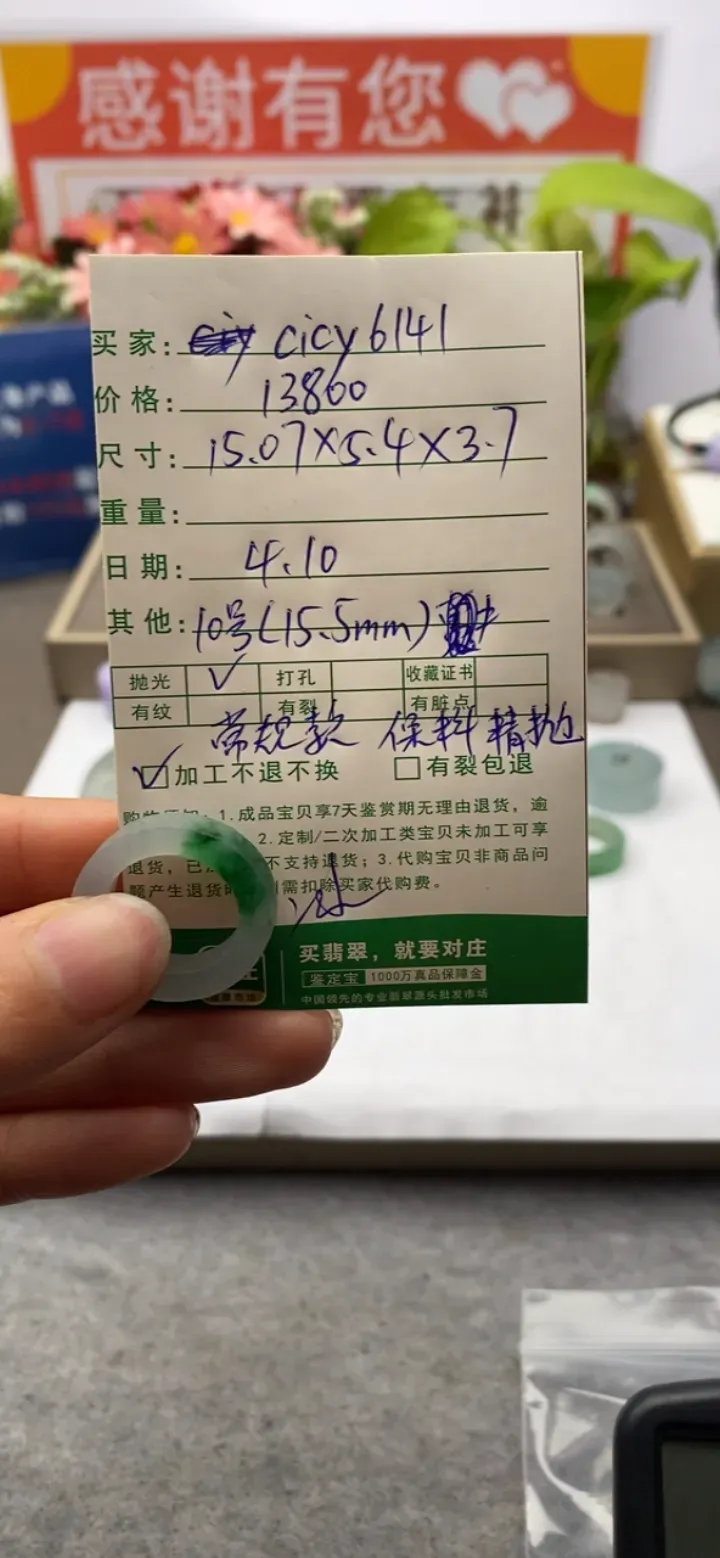 感谢有您
买家: cicy6141
价格: 13800
尺寸: 15.07×5.4×3.7
重量:
日期: 4.10
其他: 10号(15.5mm)
抛光 ✓ 打孔 收藏证书
有纹 有裂 有脏点
常规款 保料精抛
☑加工不退不换 □有裂包退
购物须知:1.成品宝贝享7天鉴赏期无理由退货,逾
2.定制/二次加工类宝贝未加工可享
退货,已 不支持退货;3.代购宝贝非商品问
题产生退货时 需扣除买家代购费。
买翡翠,就要对庄
鉴定宝 1000万真品保障金
中国领先的专业翡翠源头批发市场